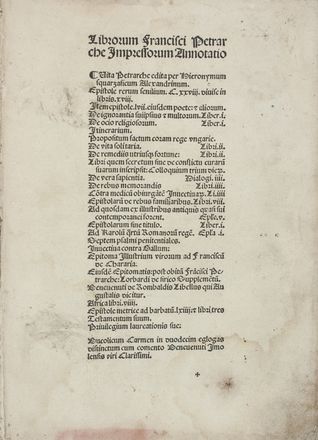 Librorum Francisci Petrar
che Impressorum Annotatio
Vita Petrarche edita per Hieronymum
squarzaficum Alexandrinum.
Epistole rerum senilium. C.xxviij. diuise in
libris.xviij.
Item epistole.lvij. eiusdem poete: et aliorum.
De ignorantia suiipsius et multorum. Liber.i.
De ocio religiosorum. Liber.i.
Itinerarium.
Propositum factum coram rege vngarie.
De vita solitaria. Libri.ij.
De remedijs vtriusque fortune: Libri.ij.
Libri quem secretum siue de conflictu curarū
suarum inscripsit: Colloquium trium dierū.
De vera sapientia. Dialogi.iij.
De rebus memorandis Libri.iiij.
Cōtra medicū obiurgātē Inuectiuarū. Li.iiij
Epistolarū de rebus familiaribus. Libri.viij.
Ad quosdam ex illustribus antiquis quasi sui
contemporanei forent. Eple.v.
Epistolarum sine titulo. Liber.i.
Ad Karolū quartū Romanorū regē. Epla .i.
Septem psalmi penitentiales.
Inuectiua contra Gallum:
Epitoma Illustrium virorum ad Franciscū
de Chararia.
Eiusdē Epitomatis: post obitū Frācisci Pe
trarche: Lombardi de sirico Supplementū.
Beneuenuti de Rombaldis Libellus qui Au
gustalis dicitur.
Africa libri.viiij.
Epistole metrice ad barbatū.lxiiij et libri tres
Testamentum suum.
Priuilegium laureationis sue:
Bucolicum Carmen in duodecim eglogas
distinctum cum comento Beneuenuti Imo
lensis viri Clarissimi.